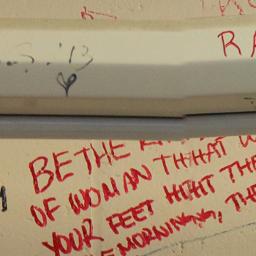 S. '13
RA
BE THE
OF WOMAN THHAT W
YOUR FEET HIHT THE
MORNINING, THE